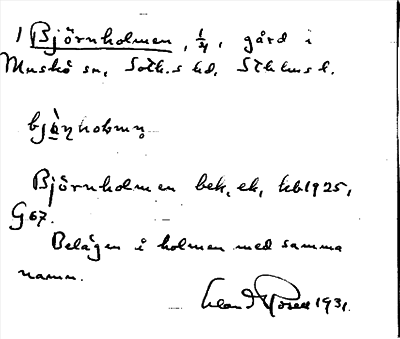 1 Björnholmen, 1/4, gård i
Muskö sn, Soth.s hd, Sthlms l.
Björnholmen bek, ek, kb 1925,
G67.
Belägen i holmen med samma
namn.
1931.